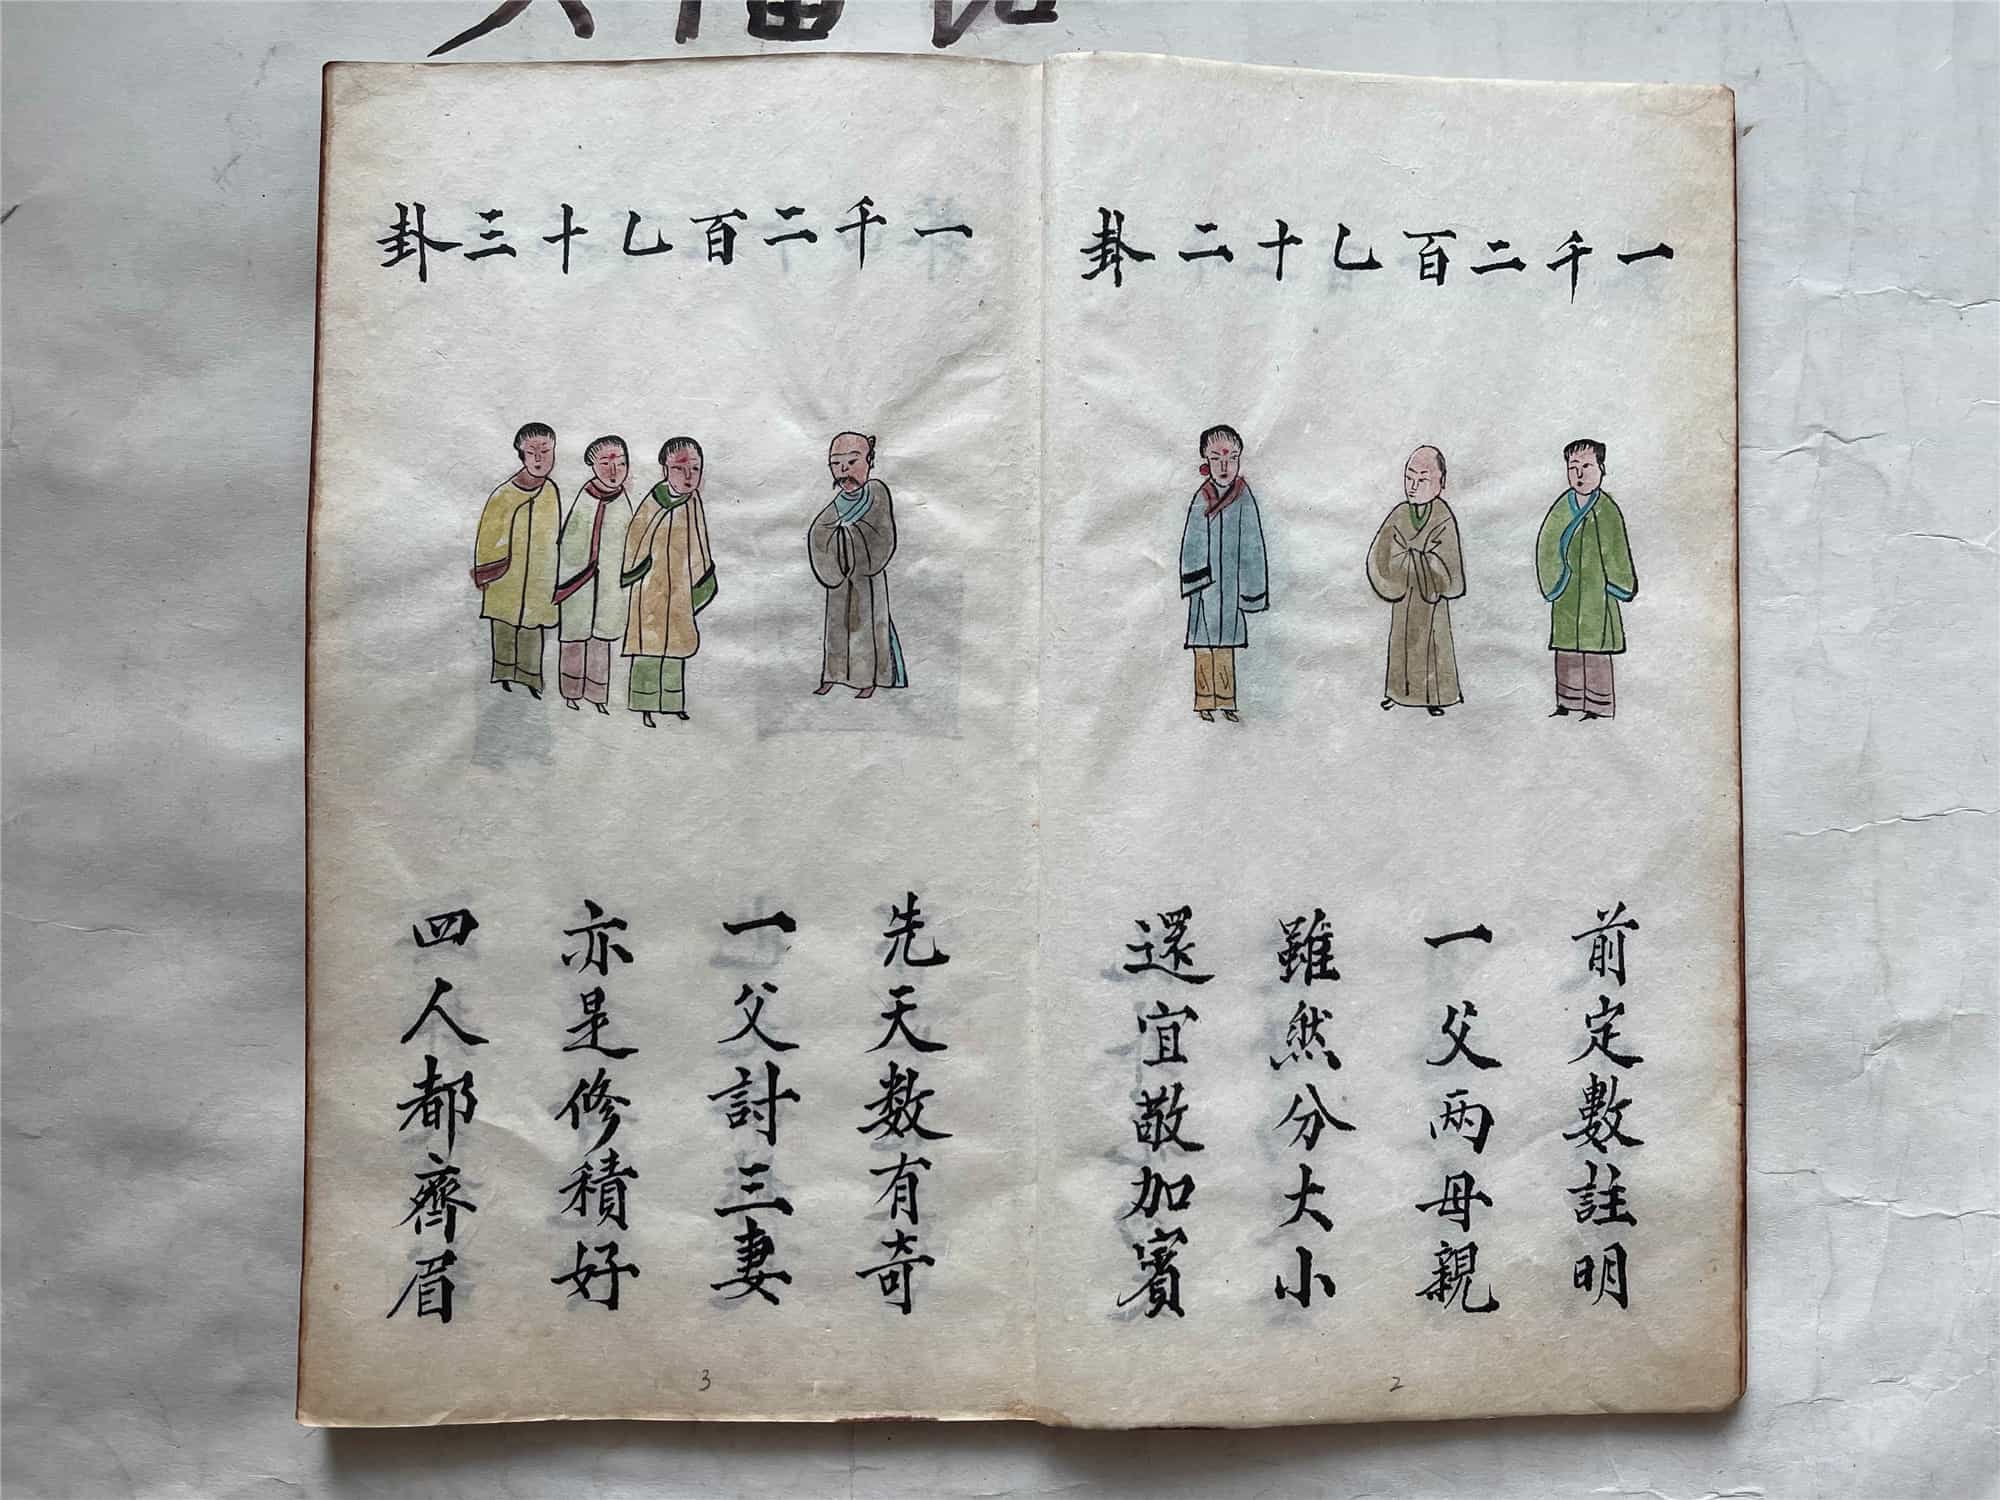 一千二百乙十二卦
前定數註明
一父兩母親
雖然分大小
還宜敬加賓
2
一千二百乙十三卦
先天数有奇
一父討三妻
亦是修積好
四人都齊眉
3